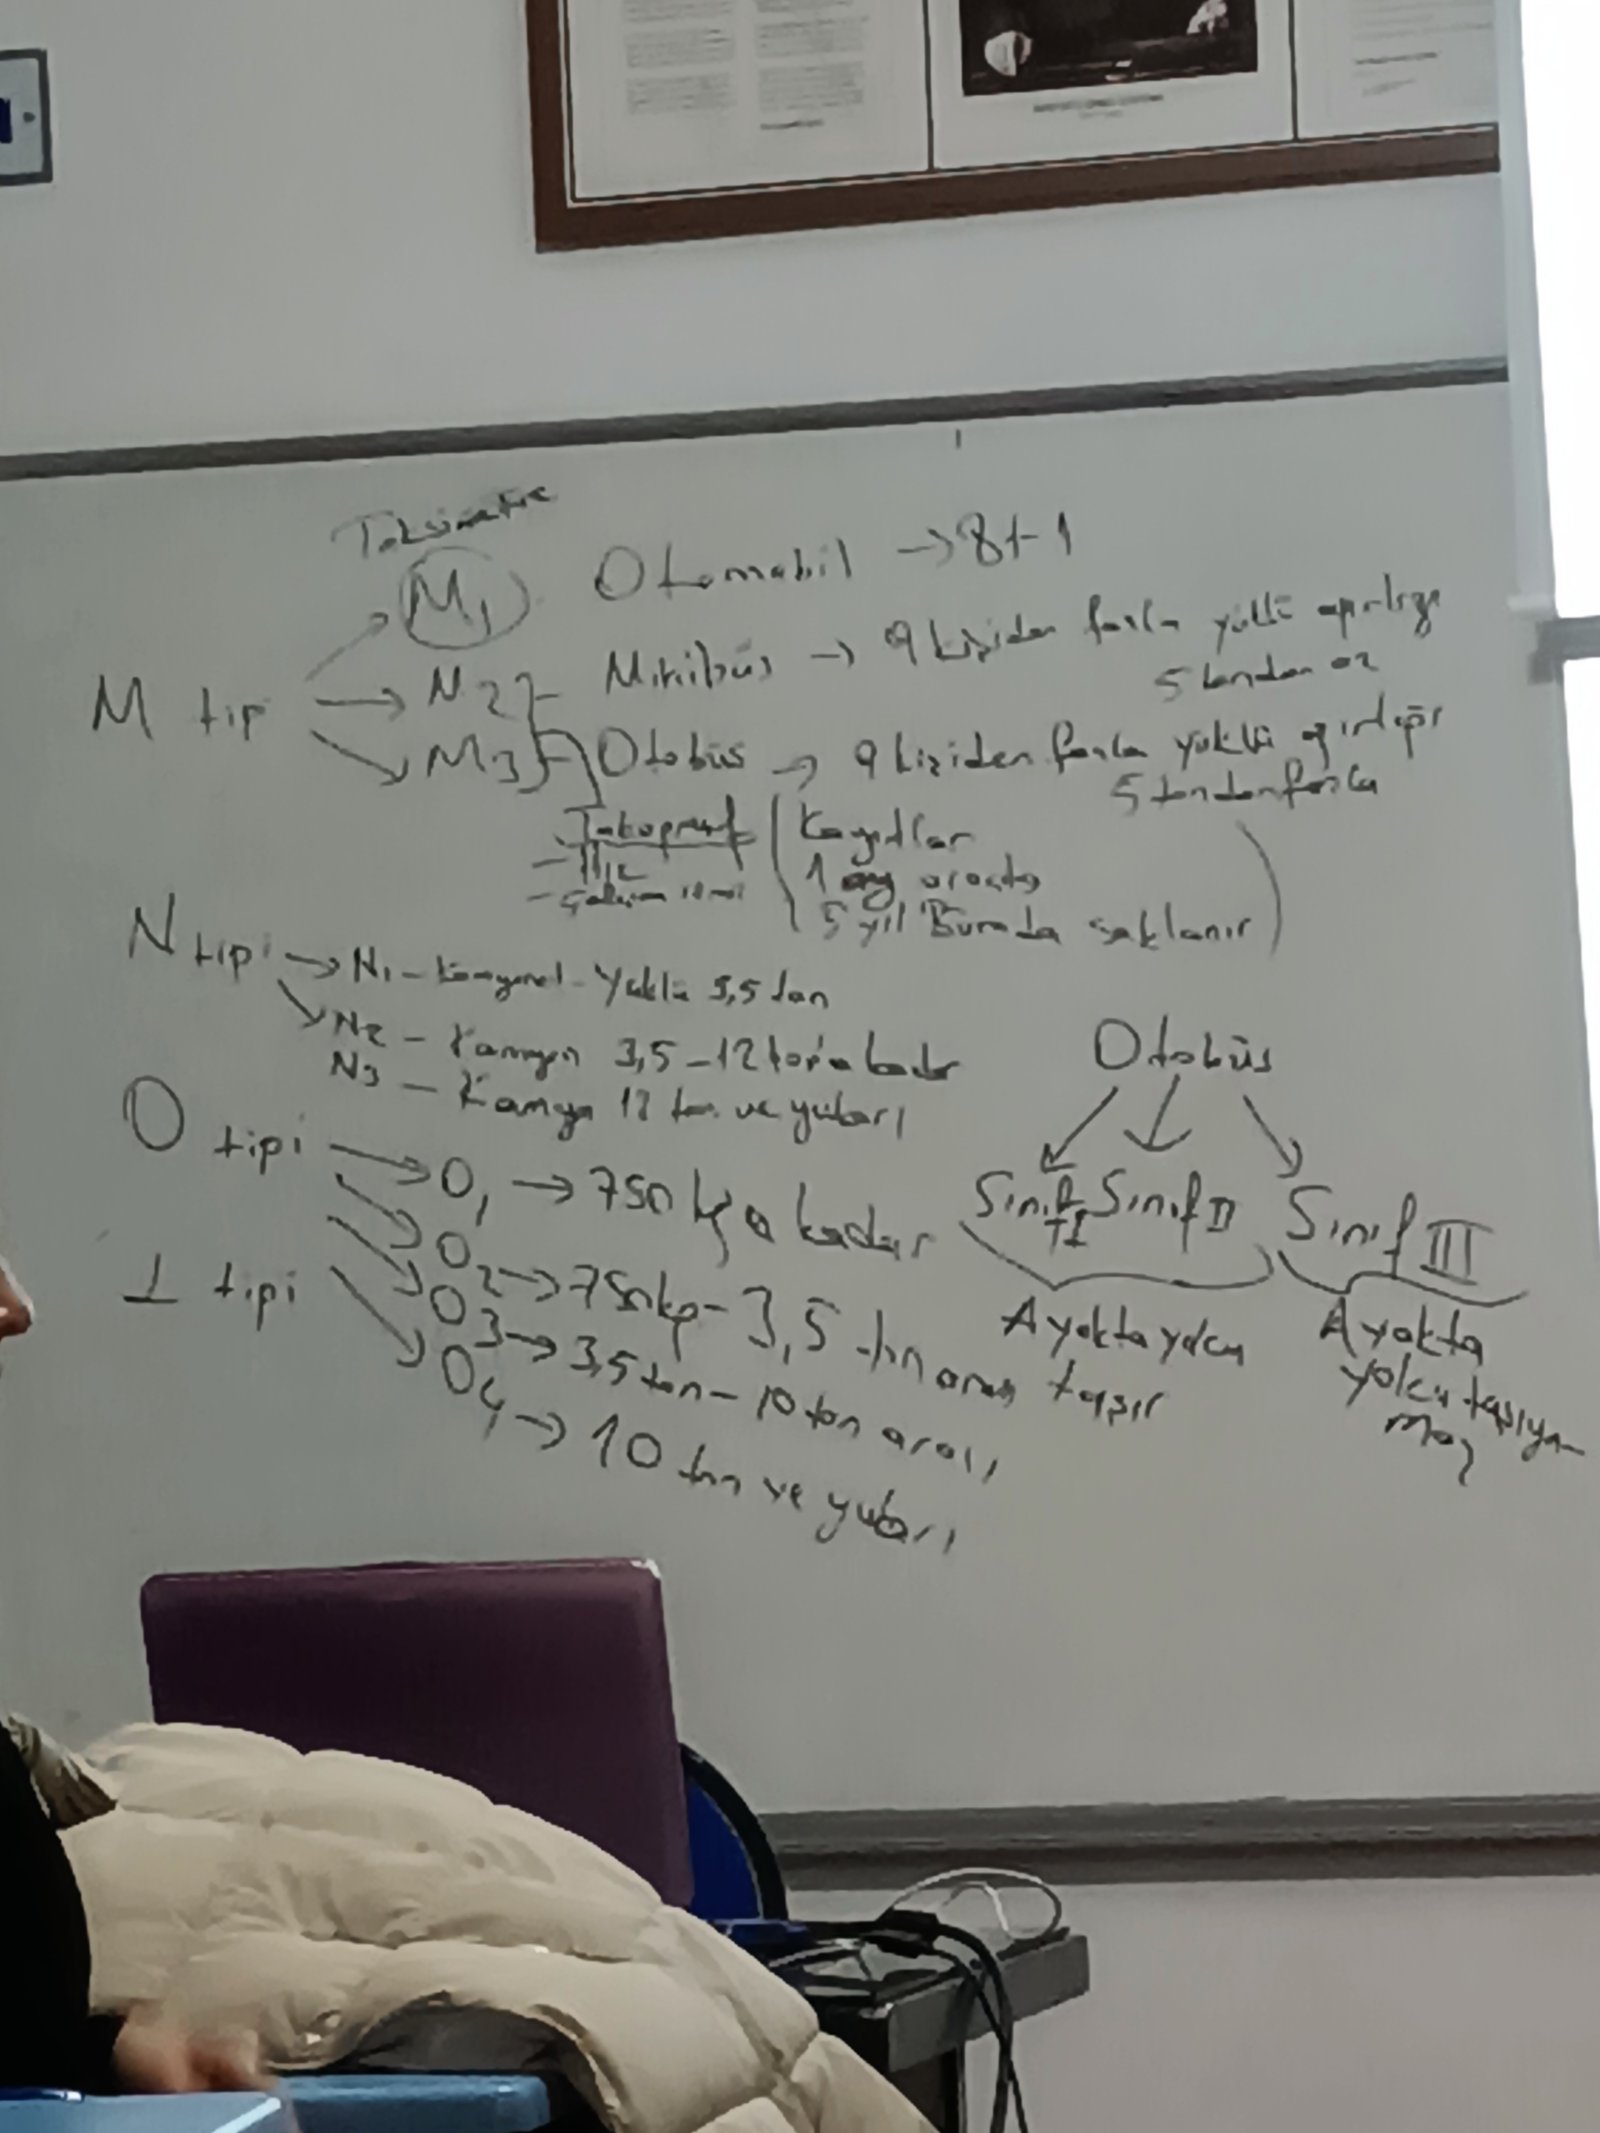 Taksimetre
M tip
M1 Otomabil → 8+1
M2 - Minibüs → 9 kişiden fazla yüklü ağırlığı
5 tondan az
M3 - Otobüs → 9 kişiden fazla yüklü ağırlığı
5 tondan fazla
Takograf
- Hız
- Çalışma
Kayıtlar
1 ay araçta
5 yıl Büroda saklanır
N tipi → N1 - Kamyonet - Yüklü 3,5 ton
N2 - Kamyon 3,5-12 tona kadar
N3 - Kamyon 12 ton ve yukarı
O tipi → O1 → 750 kg a kadar
O2 → 750kg - 3,5 ton arası
O3 → 3,5 ton - 10 ton arası
O4 → 10 ton ve yukarı
T tipi
Otobüs
Sınıf I Sınıf II Sınıf III
Ayakta yolcu
taşır
Ayakta
yolcu taşıya
maz